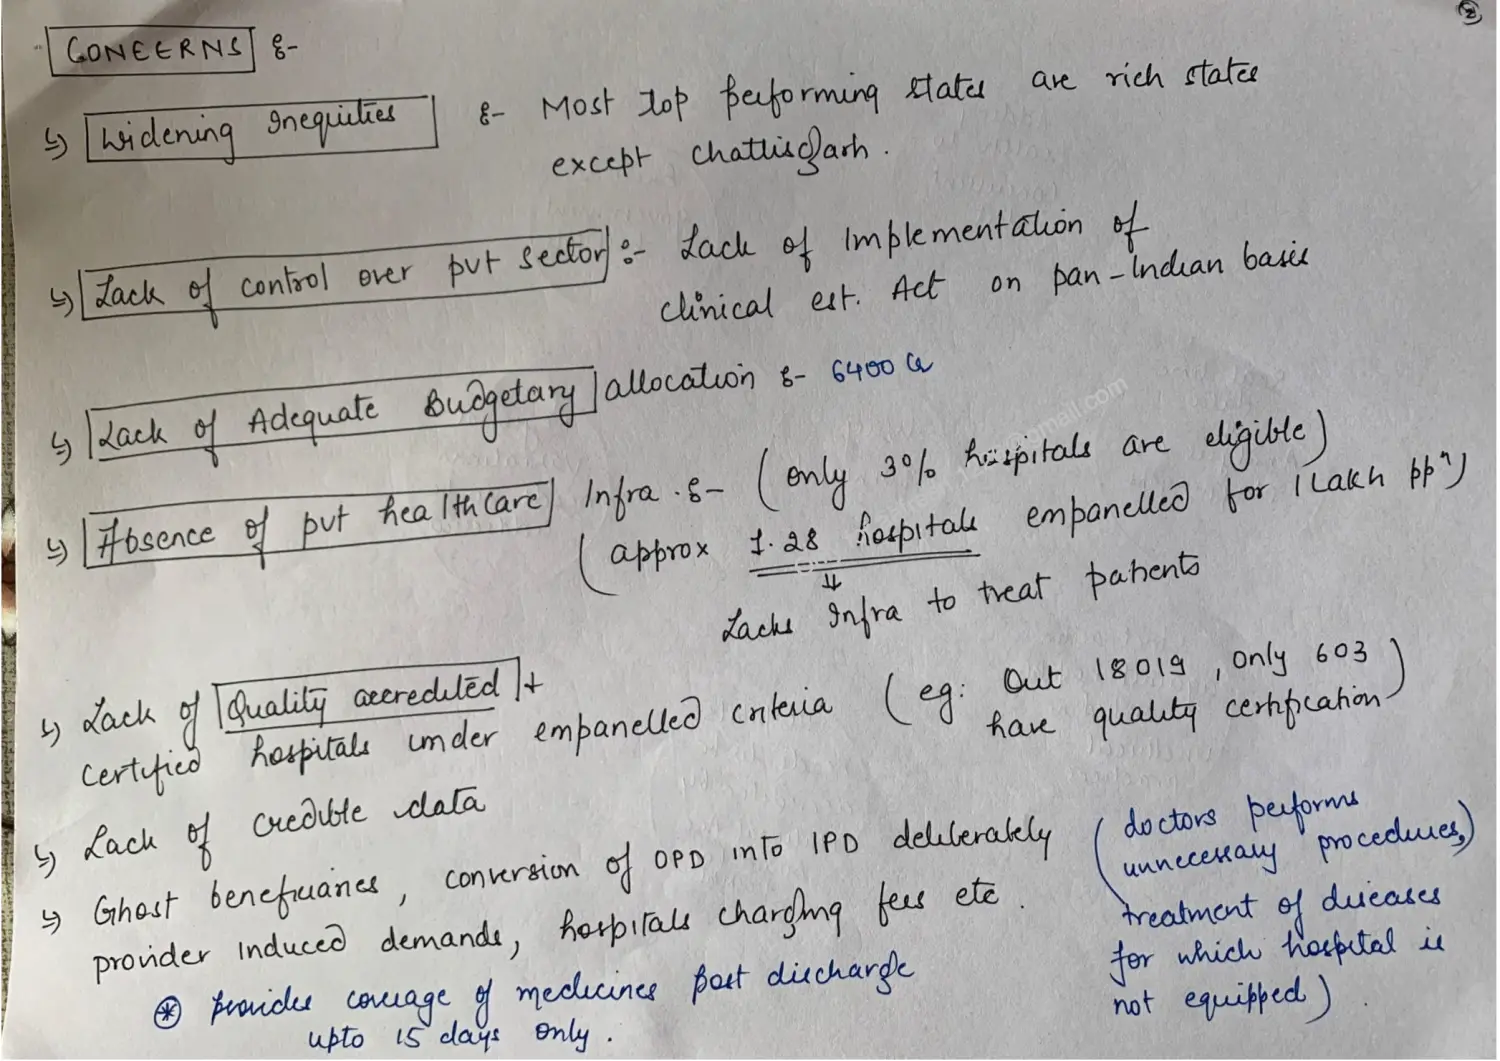 8
CONCERNS :-
↳ Widening Inequities :- Most top performing states are rich states
except chattisgarh.
↳ Lack of control over pvt sector :- Lack of Implementation of
clinical est. Act on pan-Indian basis
↳ Lack of Adequate Budgetary allocation :- 6400 Cr
↳ Absence of pvt healthcare Infra :- (only 3% hospitals are eligible)
(approx 1.28 hospitals empanelled for 1 Lakh ppⁿ)
⇓
Lacks Infra to treat patients
↳ Lack of Quality accredited +
certified hospitals under empanelled criteria (eg: Out 18019, only 603
have quality certification)
↳ Lack of credible data
↳ Ghost beneficiaries, conversion of OPD into IPD deliberately
provider induced demands, hospitals charging fees etc.
(doctors performs
unnecessary procedures,)
treatment of diseases
for which hospital is
not equipped).
⊛ provides coverage of medicines post discharge
upto 15 days only.